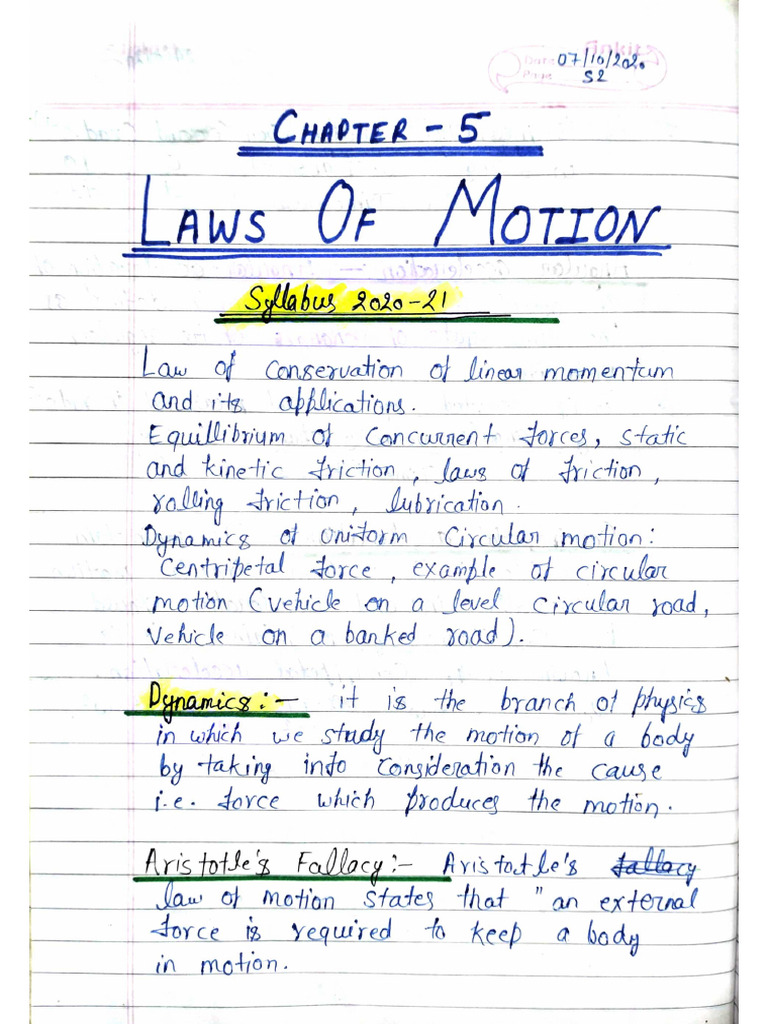 Date 07/10/2020
Page 52
CHAPTER - 5
LAWS OF MOTION
Syllabus 2020-21
Law of conservation of linear momentum
and its applications.
Equillibrium of concurrent forces, static
and kinetic friction, laws of friction,
rolling friction, lubrication.
Dynamics of uniform Circular motion:
Centripetal force, example of circular
motion (vehicle on a level circular road,
vehicle on a banked road).
Dynamics:- it is the branch of physics
in which we study the motion of a body
by taking into consideration the cause
i.e. force which produces the motion.
Aristotle's Fallacy:- Aristotle's fallacy
law of motion states that "an external
force is required to keep a body
in motion.